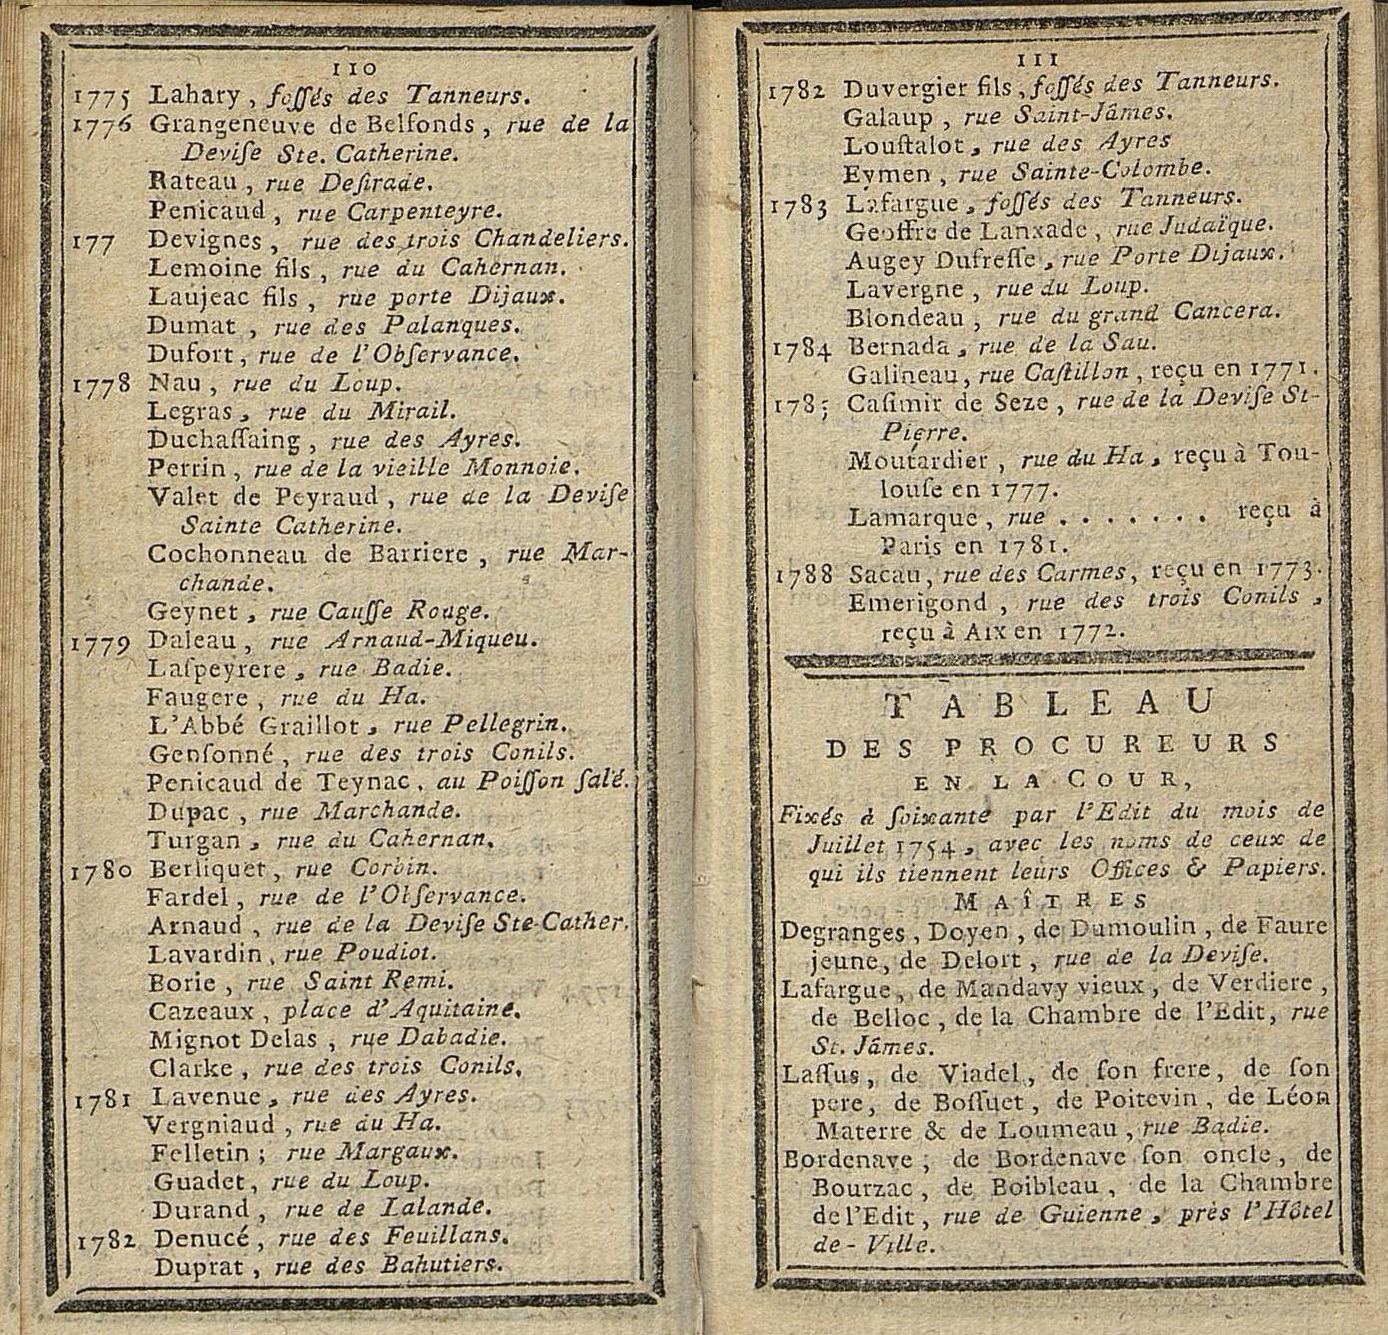 110
1775 Lahary, foſſés des Tanneurs.
1776 Grangeneuve de Belfonds, rue de la
Deviſe Ste. Catherine.
Rateau, rue Deſirade.
Penicaud, rue Carpenteyre.
177 Devignes, rue des trois Chandeliers.
Lemoine fils, rue du Cahernan.
Laujeac fils, rue porte Dijaux.
Dumat, rue des Palanques.
Dufort, rue de l'Obſervance.
1778 Nau, rue du Loup.
Legras, rue du Mirail.
Duchaſſaing, rue des Ayres.
Perrin, rue de la vieille Monnoie.
Valet de Peyraud, rue de la Deviſe
Sainte Catherine.
Cochonneau de Barriere, rue Mar-
chande.
Geynet, rue Cauſſe Rouge.
1779 Daleau, rue Arnaud-Miqueu.
Laſpeyrere, rue Badie.
Faugere, rue du Ha.
L'Abbé Graillot, rue Pellegrin.
Genſonné, rue des trois Conils.
Penicaud de Teynac, au Poiſſon ſalé.
Dupac, rue Marchande.
Turgan, rue du Cahernan.
1780 Berliquet, rue Corbin.
Fardel, rue de l'Obſervance.
Arnaud, rue de la Deviſe Ste-Cather.
Lavardin, rue Poudiot.
Borie, rue Saint Remi.
Cazeaux, place d'Aquitaine.
Mignot Delas, rue Dabadie.
Clarke, rue des trois Conils.
1781 Lavenue, rue des Ayres.
Vergniaud, rue du Ha.
Felletin; rue Margaux.
Guadet, rue du Loup.
Durand, rue de Lalande.
1782 Denucé, rue des Feuillans.
Duprat, rue des Bahutiers.
111
1782 Duvergier fils, foſſés des Tanneurs.
Galaup, rue Saint-Jâmes.
Louſtalot, rue des Ayres
Eymen, rue Sainte-Colombe.
1783 Lafargue, foſſés des Tanneurs.
Geoffre de Lanxade, rue Judaïque.
Augey Dufreſſe, rue Porte Dijaux.
Lavergne, rue du Loup.
Blondeau, rue du grand Cancera.
1784 Bernada, rue de la Sau.
Galineau, rue Caſtillon, reçu en 1771.
1785 Caſimir de Seze, rue de la Deviſe St-
Pierre.
Moutardier, rue du Ha, reçu à Tou-
louſe en 1777.
Lamarque, rue . . . . . . . reçu à
Paris en 1781.
1788 Sacau, rue des Carmes, reçu en 1773.
Emerigond, rue des trois Conils,
reçu à Aix en 1772.
TABLEAU
DES PROCUREURS
EN LA COUR,
Fixés à ſoixante par l'Edit du mois de
Juillet 1754, avec les noms de ceux de
qui ils tiennent leurs Offices & Papiers.
MAÎTRES
Degranges, Doyen, de Dumoulin, de Faure
jeune, de Delort, rue de la Deviſe.
Lafargue, de Mandavy vieux, de Verdiere,
de Belloc, de la Chambre de l'Edit, rue
St. Jâmes.
Laſſus, de Viadel, de ſon frere, de ſon
pere, de Boſſuet, de Poitevin, de Léon
Materre & de Loumeau, rue Badie.
Bordenave, de Bordenave ſon oncle, de
Bourzac, de Boibleau, de la Chambre
de l'Edit, rue de Guienne, près l'Hôtel
de-Ville.